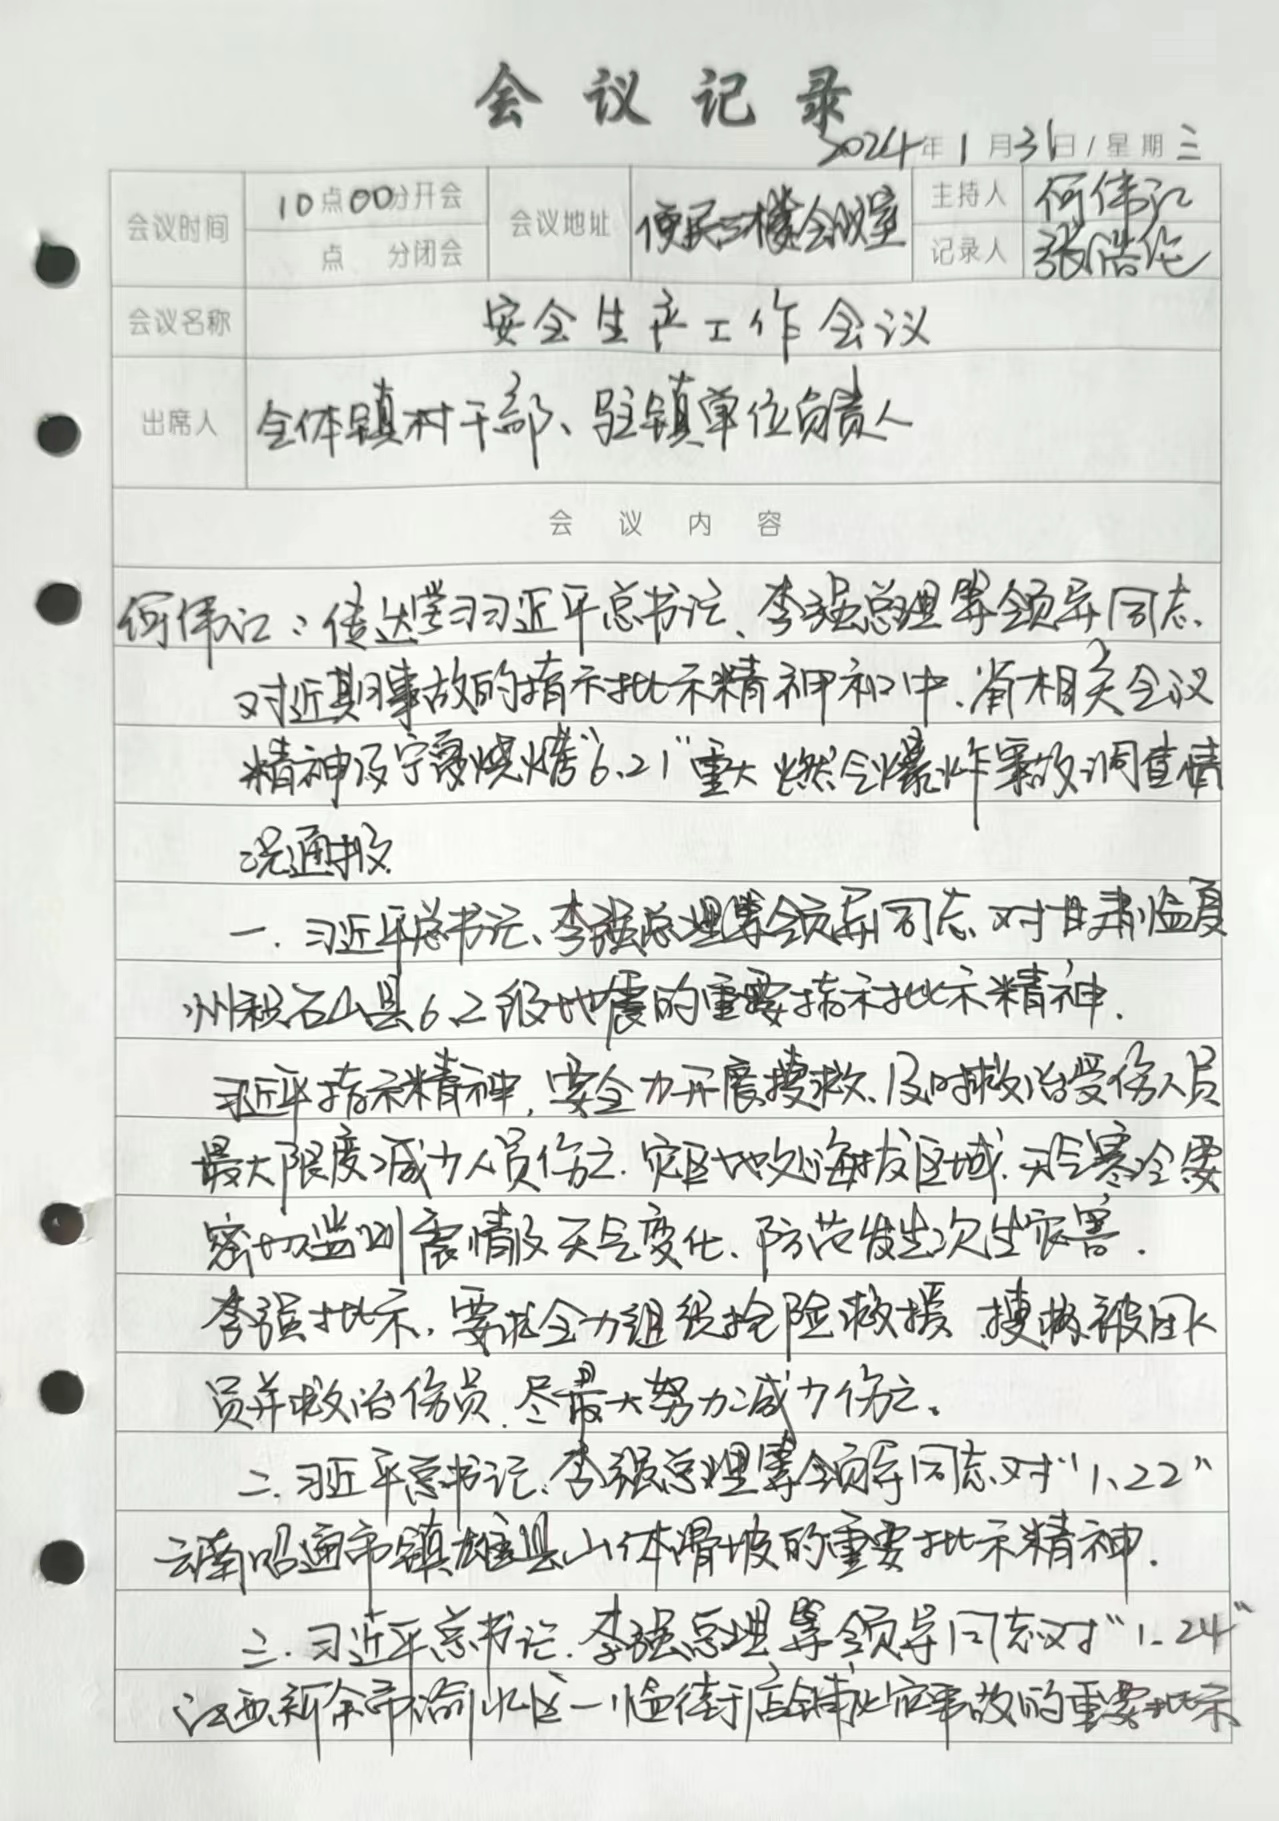 会议记录
2024年1月31日/星期三
会议时间 10点00分开会 会议地址 便民三楼会议室 主持人 何伟江
点 分闭会 记录人 张浩伦
会议名称 安全生产工作会议
出席人 全体镇村干部、驻镇单位负责人
会议内容
何伟江:传达学习习近平总书记、李强总理等领导同志、
对近期事故的指示批示精神和中、省相关会议
精神及宁夏烧烤"6.21"重大燃气爆炸事故调查情
况通报
一.习近平总书记、李强总理等领导同志对甘肃临夏
州积石山县6.2级地震的重要指示批示精神.
习近平指示精神,要全力开展搜救、及时救治受伤人员
最大限度减少人员伤亡.灾区地处海拔区域.天气寒冷要
密切监测震情及天气变化、防范发生次生灾害.
李强批示,要求全力组织抢险救援 搜救被困人
员并救治伤员.尽最大努力减少伤亡。
二.习近平总书记、李强总理等领导同志对"1.22"
云南昭通市镇雄县山体滑坡的重要批示精神.
三.习近平总书记.李强总理等领导同志对"1.24"
江西新余市渝水区一临街店铺火灾事故的重要批示